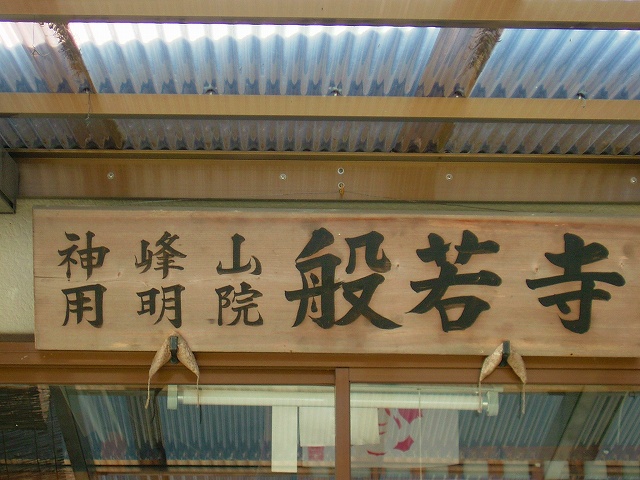 神峰山
用明院
般若寺